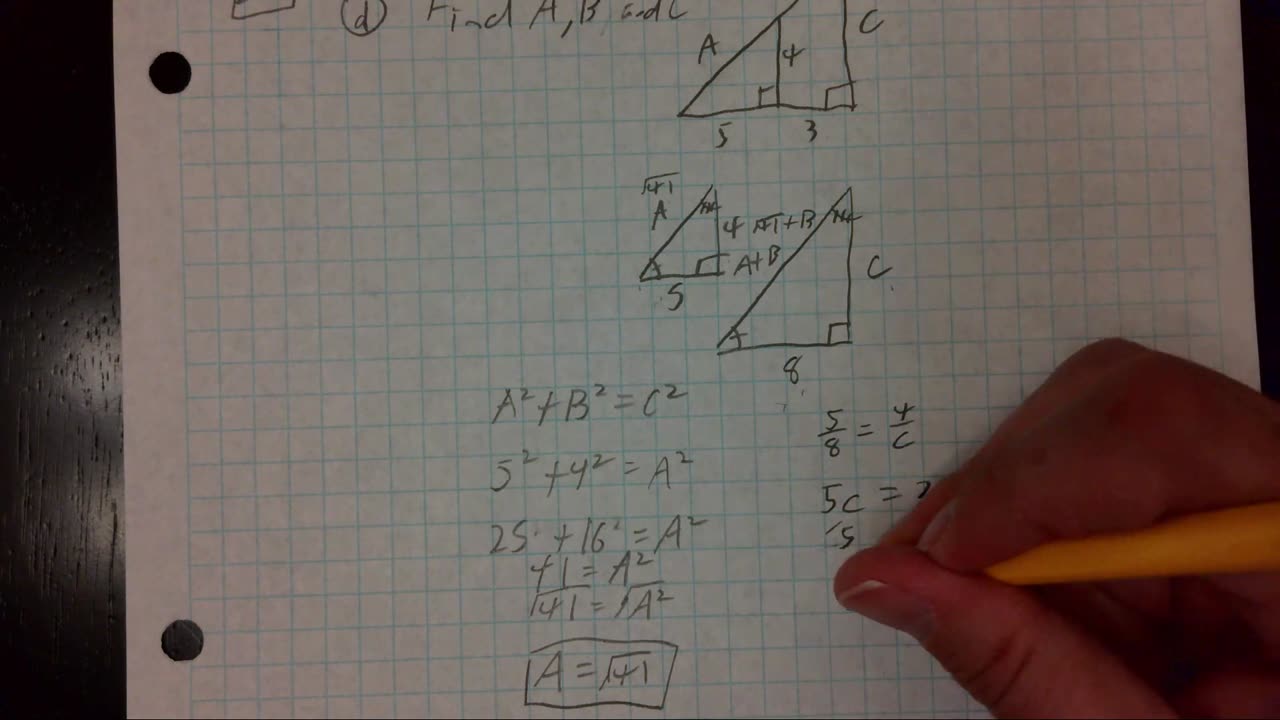 (d) Find A, B and C
A
4
C
5
3
√41
A
4
√41+B
A+B
C
5
8
A² + B² = C²
5² + 4² = A²
25 + 16 = A²
41 = A²
√41 = √A²
A = √41
5/8 = 4/C
5C =
/5